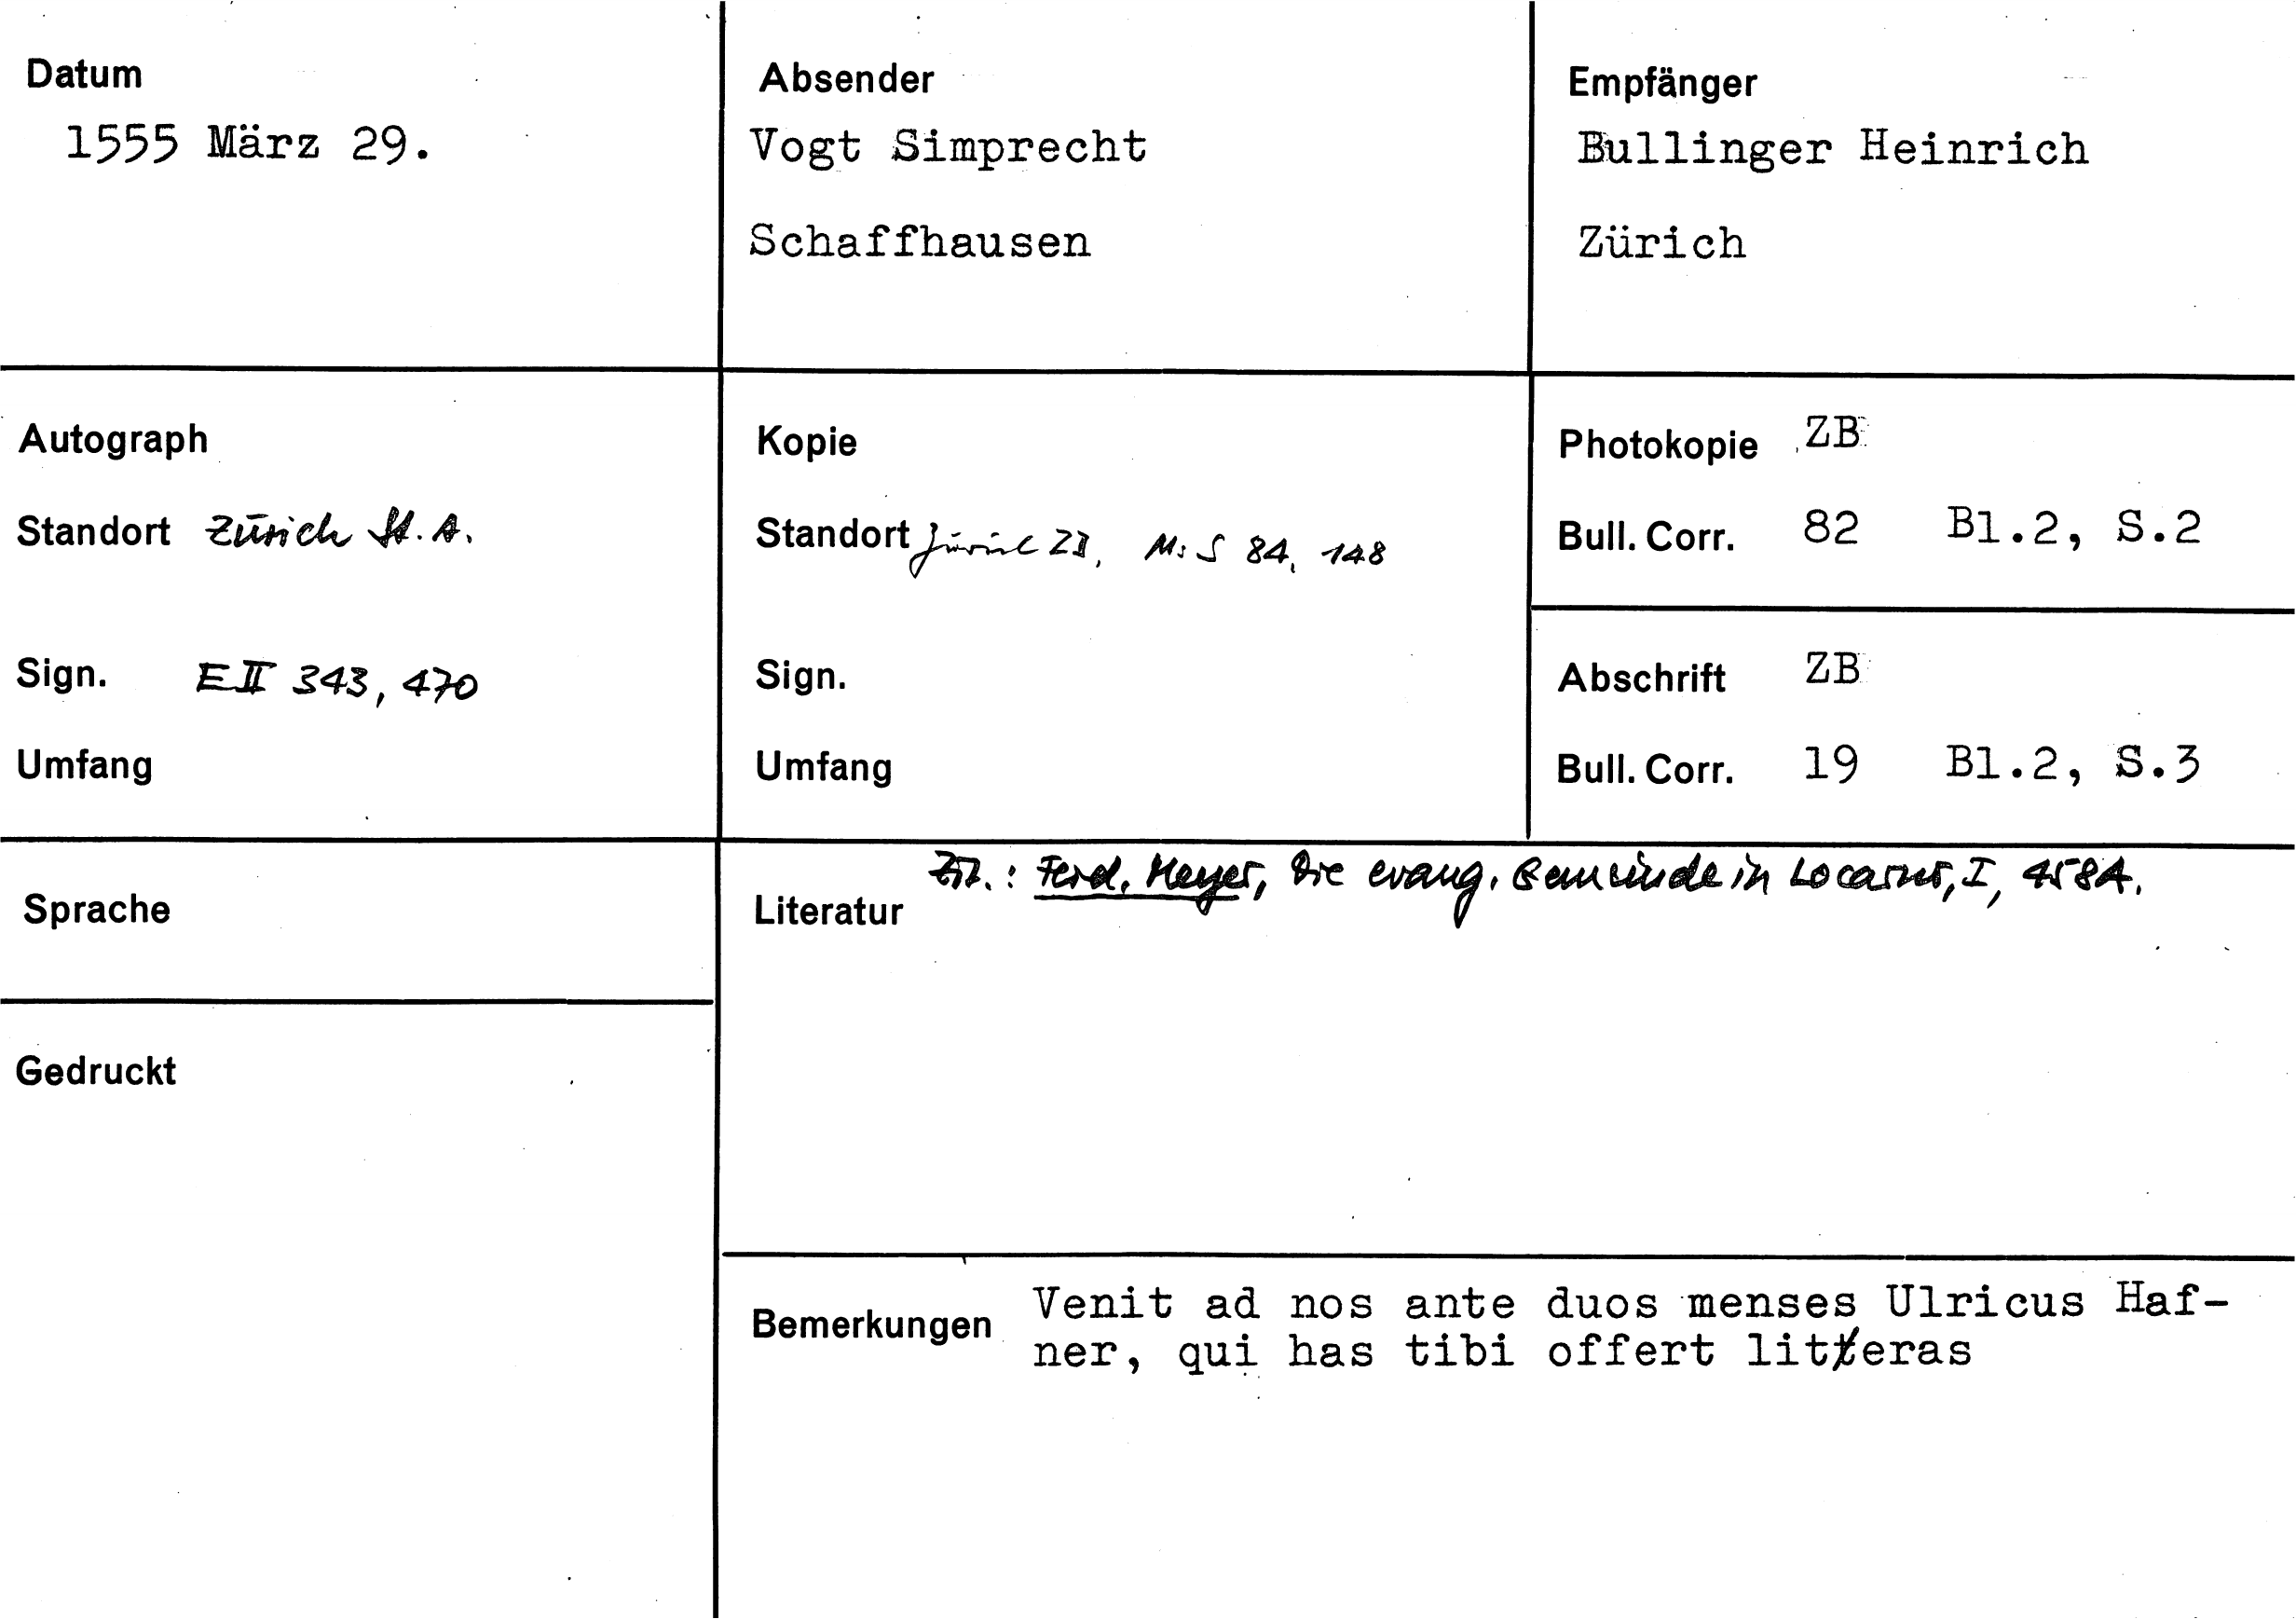 Datum
1555 März 29.
Absender
Vogt Simprecht
Schaffhausen
Empfänger
Bullinger Heinrich
Zürich
Autograph
Standort Zürich St.A.
Sign. E II 343, 470
Umfang
Kopie
Standort Zürich ZB, Ms S 84, 148
Sign.
Umfang
Photokopie ZB
Bull. Corr. 82 Bl.2, S.2
Abschrift ZB
Bull. Corr. 19 Bl.2, S.3
Sprache
Gedruckt
Literatur
Zit.: Ferd. Meyer, Die evang. Gemeinde in Locarno, I, 458A.
Bemerkungen
Venit ad nos ante duos menses Ulricus Haf-
ner, qui has tibi offert litteras